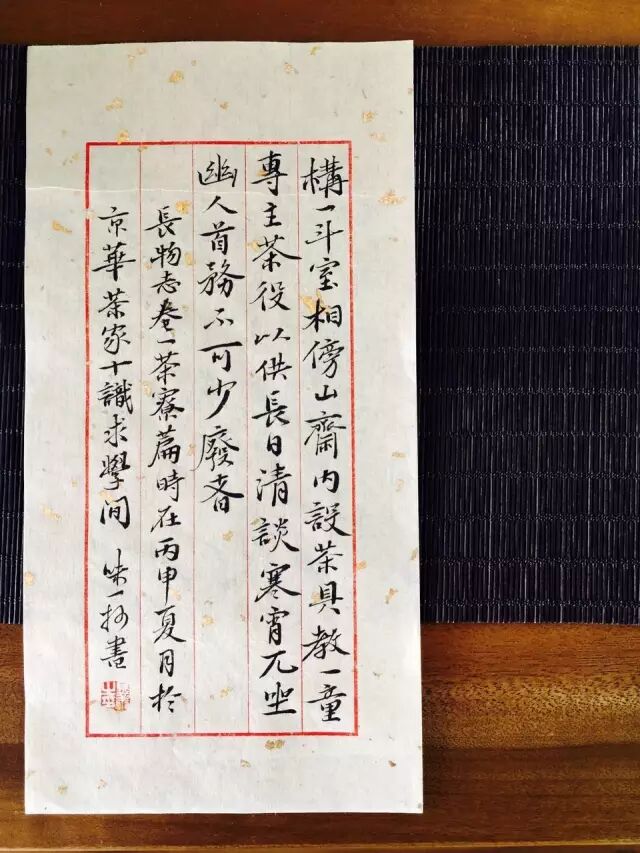 構一斗室相傍山齋內設茶具教一童
專主茶役以供長日清談寒宵兀坐
幽人首務不可少廢者
長物志卷一茶寮篇時在丙申夏月於
京華茶家十識求學間 味一 書